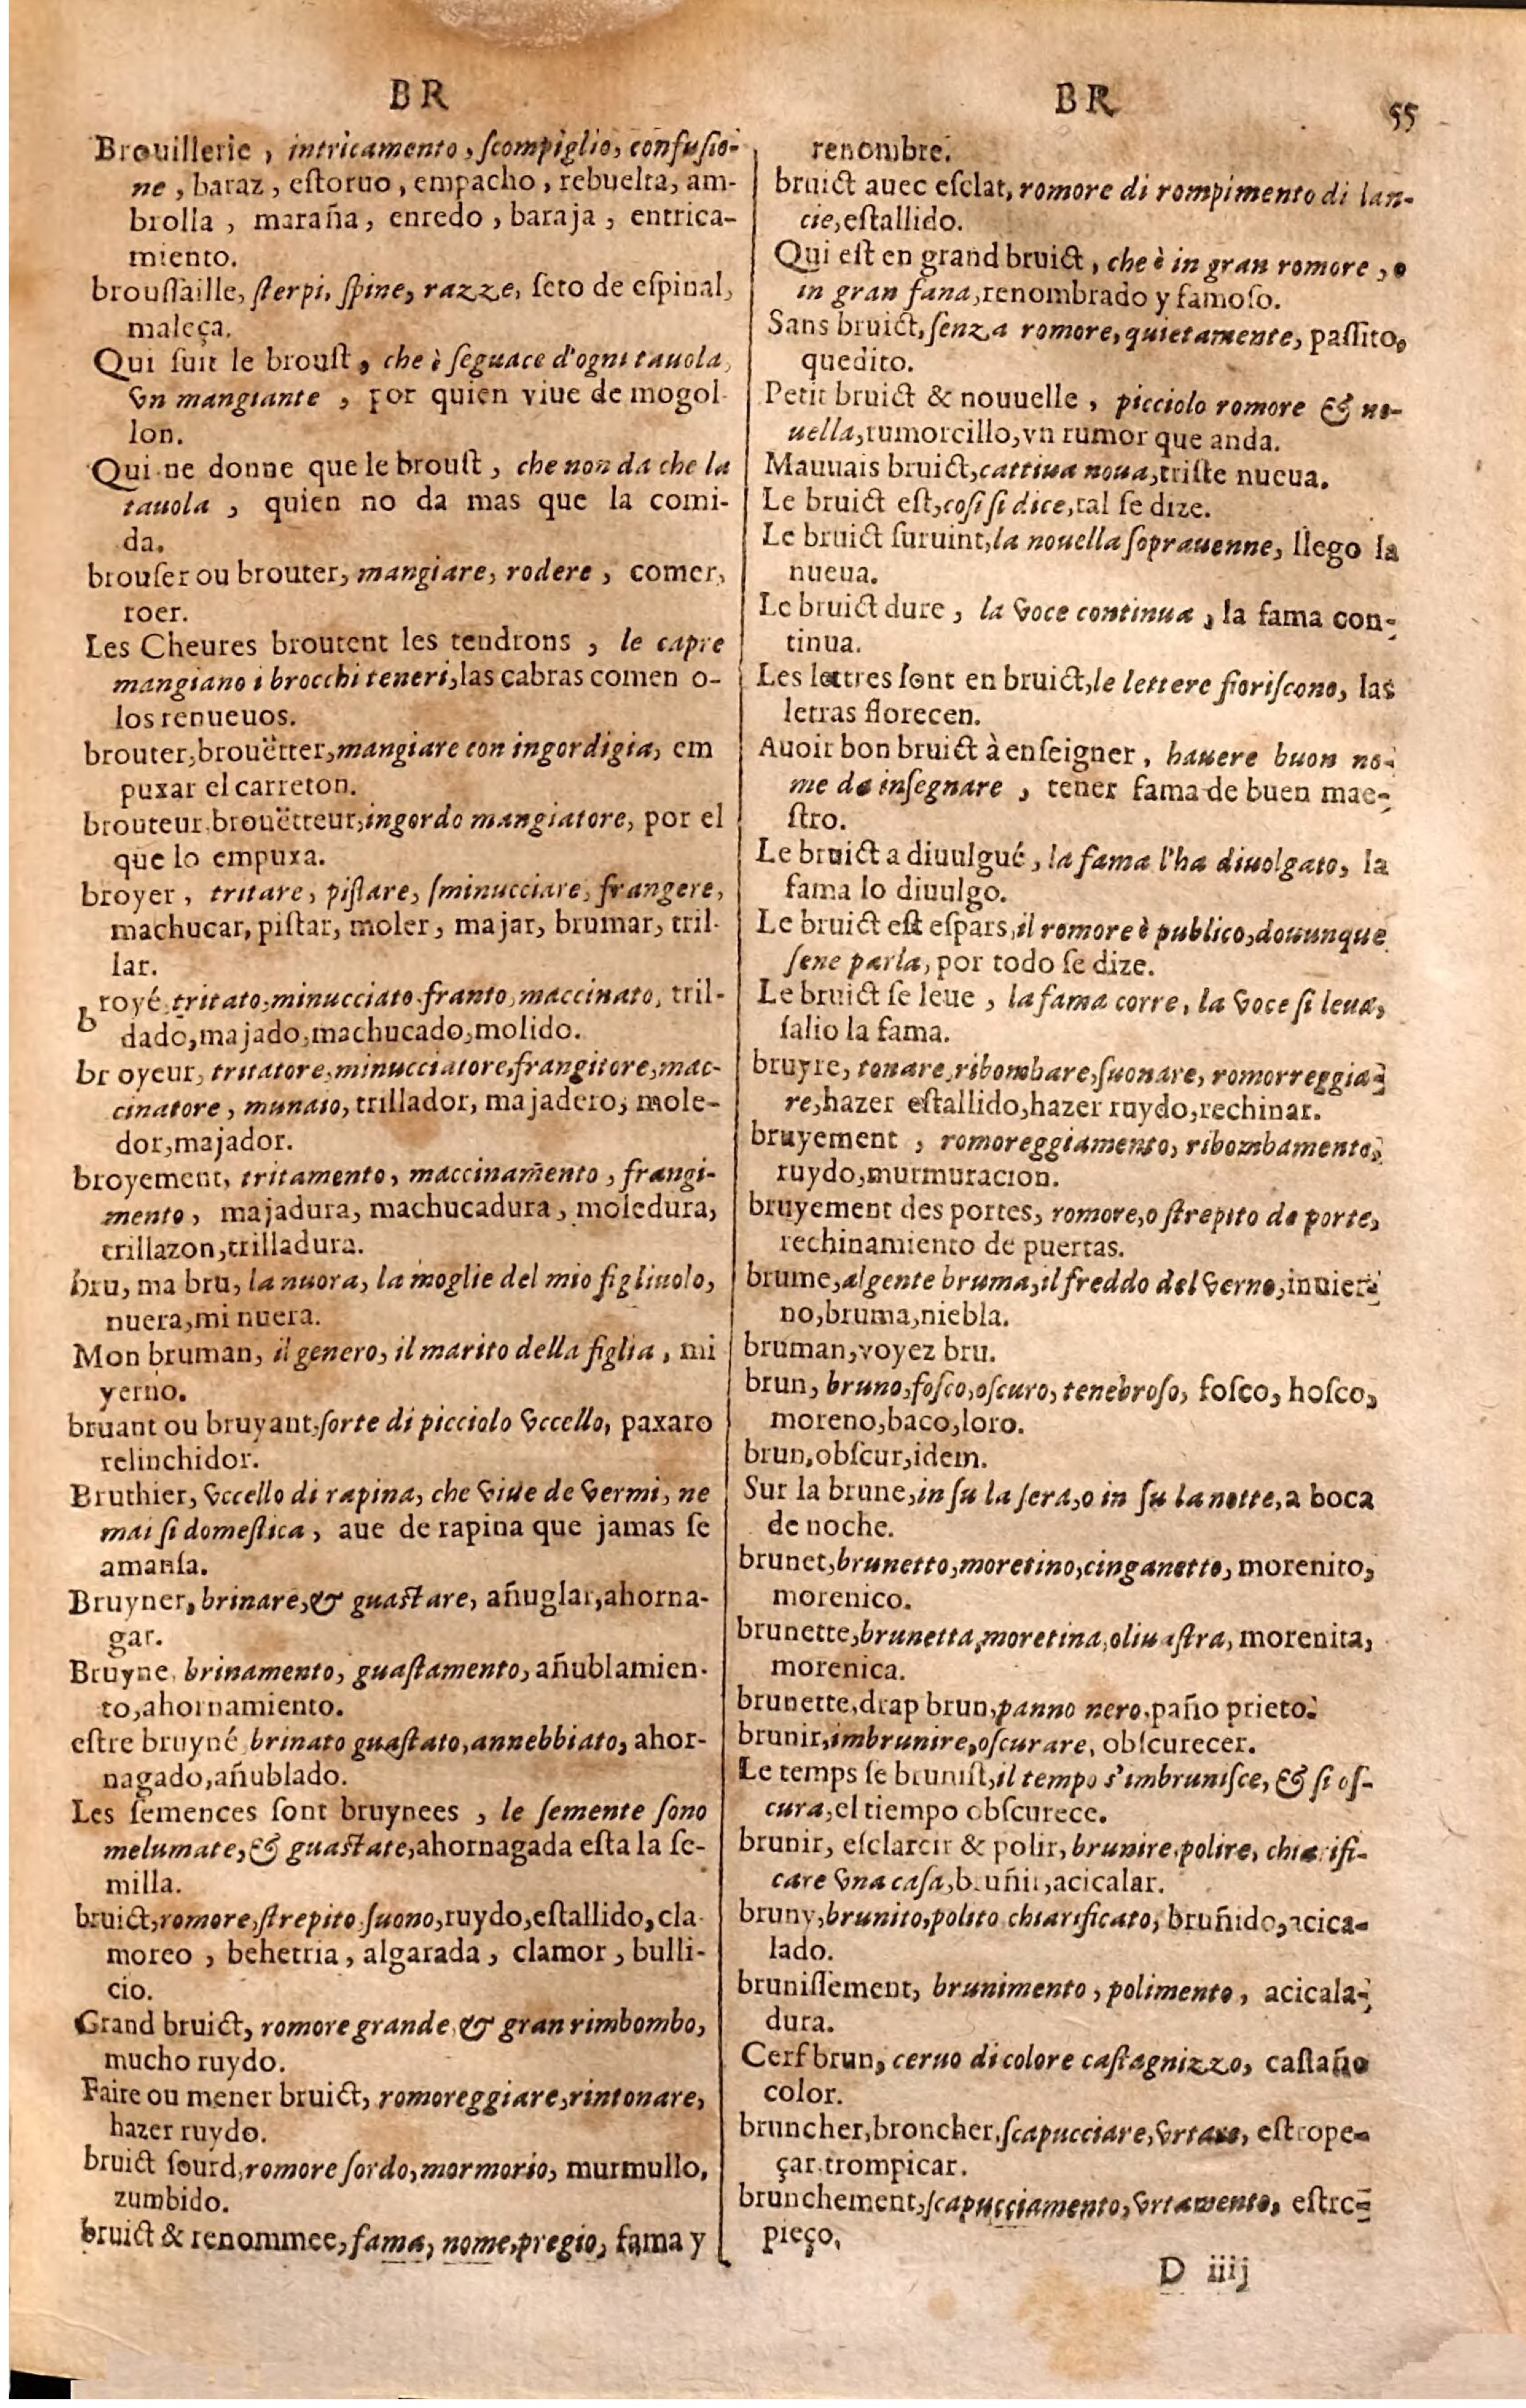 BR
Brouillerie, intricamento, ſcompiglio, confuſio-
ne, baraz, eſtoruo, empacho, rebuelta, am-
brolla, maraña, enredo, baraja, entrica-
miento.
brouſſaille, ſterpi, ſpine, razze, ſeto de eſpinal,
maleça.
Qui ſuit le brouſt, che è ſeguace d'ogni tauola,
vn mangiante, por quien viue de mogol-
lon.
Qui ne donne que le brouſt, che non da che la
tauola, quien no da mas que la comi-
da.
brouſer ou brouter, mangiare, rodere, comer,
roer.
Les Cheures broutent les tendrons, le capre
mangiano i brocchi teneri, las cabras comen o-
los renueuos.
brouter, brouëtter, mangiare con ingordigia, em
puxar el carreton.
brouteur, brouëtteur, ingordo mangiatore, por el
que lo empuxa.
broyer, tritare, piſtare, ſminucciare, frangere,
machucar, piſtar, moler, majar, brumar, tril-
lar.
broyé, tritato, minucciato, franto, maccinato, tril-
dado, majado, machucado, molido.
br oyeur, tritatore, minucciatore, frangitore, mac-
cinatore, munaio, trillador, majadero, mole-
dor, majador.
broyement, tritamento, maccinam̃ento, frangi-
mento, majadura, machucadura, moledura,
trillazon, trilladura.
bru, ma bru, la nuora, la moglie del mio figliuolo,
nuera, mi nuera.
Mon bruman, il genero, il marito della figlia, mi
yerno.
bruant ou bruyant, ſorte di picciolo vccello, paxaro
relinchidor.
Bruthier, vccello di rapina, che viue de vermi, ne
mai ſi domeſtica, aue de rapina que jamas ſe
amanſa.
Bruyner, brinare, & guaſtare, añuglar, ahorna-
gar.
Bruyne, brinamento, guaſtamento, añublamien-
to, ahornamiento.
eſtre bruyné, brinato guaſtato, annebbiato, ahor-
nagado, añublado.
Les ſemences ſont bruynees, le ſemente ſono
melumate, & guaſtate, ahornagada eſta la ſe-
milla.
bruict, romore, ſtrepito, ſuono, ruydo, eſtallido, cla-
moreo, behetria, algarada, clamor, bulli-
cio.
Grand bruict, romore grande, & gran rimbombo,
mucho ruydo.
Faire ou mener bruict, romoreggiare, rintonare,
hazer ruydo.
bruict ſourd, romore ſordo, mormorio, murmullo,
zumbido.
bruict & renommee, fama, nome, pregio, fama y
BR 55
renombre.
bruict auec eſclat, romore di rompimento di lan-
cie, eſtallido.
Qui eſt en grand bruict, che è in gran romore, o
in gran fana, renombrado y famoſo.
Sans bruict, ſenza romore, quietamente, paſſito,
quedito.
Petit bruict & nouuelle, picciolo romore & no-
uella, rumorcillo, vn rumor que anda.
Mauuais bruict, cattiua noua, triſte nueua.
Le bruict eſt, coſi ſi dice, tal ſe dize.
Le bruict ſuruint, la nouella ſoprauenne, llego la
nueua.
Le bruict dure, la voce continua, la fama con-
tinua.
Les lettres ſont en bruict, le lettere fioriſcono, las
letras florecen.
Auoir bon bruict à enſeigner, hauere buon no-
me da inſegnare, tener fama de buen mae-
ſtro.
Le bruict a diuulgué, la fama l'ha diuolgato, la
fama lo diuulgo.
Le bruict eſt eſpars, il romore è publico, douunque
ſene parla, por todo ſe dize.
Le bruict ſe leue, la fama corre, la voce ſi leua,
ſalio la fama.
bruyre, tonare, ribombare, ſuonare, romorreggia-
re, hazer eſtallido, hazer ruydo, rechinar.
bruyement, romoreggiamento, ribombamento,
ruydo, murmuracion.
bruyement des portes, romore, o ſtrepito de porte,
rechinamiento de puertas.
brume, algente bruma, il freddo del verno, inuier-
no, bruma, niebla.
bruman, voyez bru.
brun, bruno, foſco, oſcuro, tenebroſo, foſco, hoſco,
moreno, baco, loro.
brun, obſcur, idem.
Sur la brune, in ſu la ſera, o in ſu la notte, a boca
de noche.
brunet, brunetto, moretino, cinganetto, morenito,
morenico.
brunette, brunetta, moretina, oliuaſtra, morenita,
morenica.
brunette, drap brun, panno nero, paño prieto.
brunir, imbrunire, oſcurare, obſcurecer.
Le temps ſe bruniſt, il tempo s'imbruniſce, & ſi oſ-
cura, el tiempo obſcurece.
brunir, eſclarcir & polir, brunire, polire, chiarifi-
care vna caſa, bruñir, acicalar.
bruny, brunito, polito chiarificato, bruñido, acica-
lado.
bruniſſement, brunimento, polimento, acicala-
dura.
Cerf brun, ceruo di colore caſtagnizzo, caſtaño
color.
bruncher, broncher, ſcapucciare, vrtare, eſtrope-
çar, trompicar.
brunchement, ſcapucciamento, vrtamento, eſtro-
pieço,
D iiij